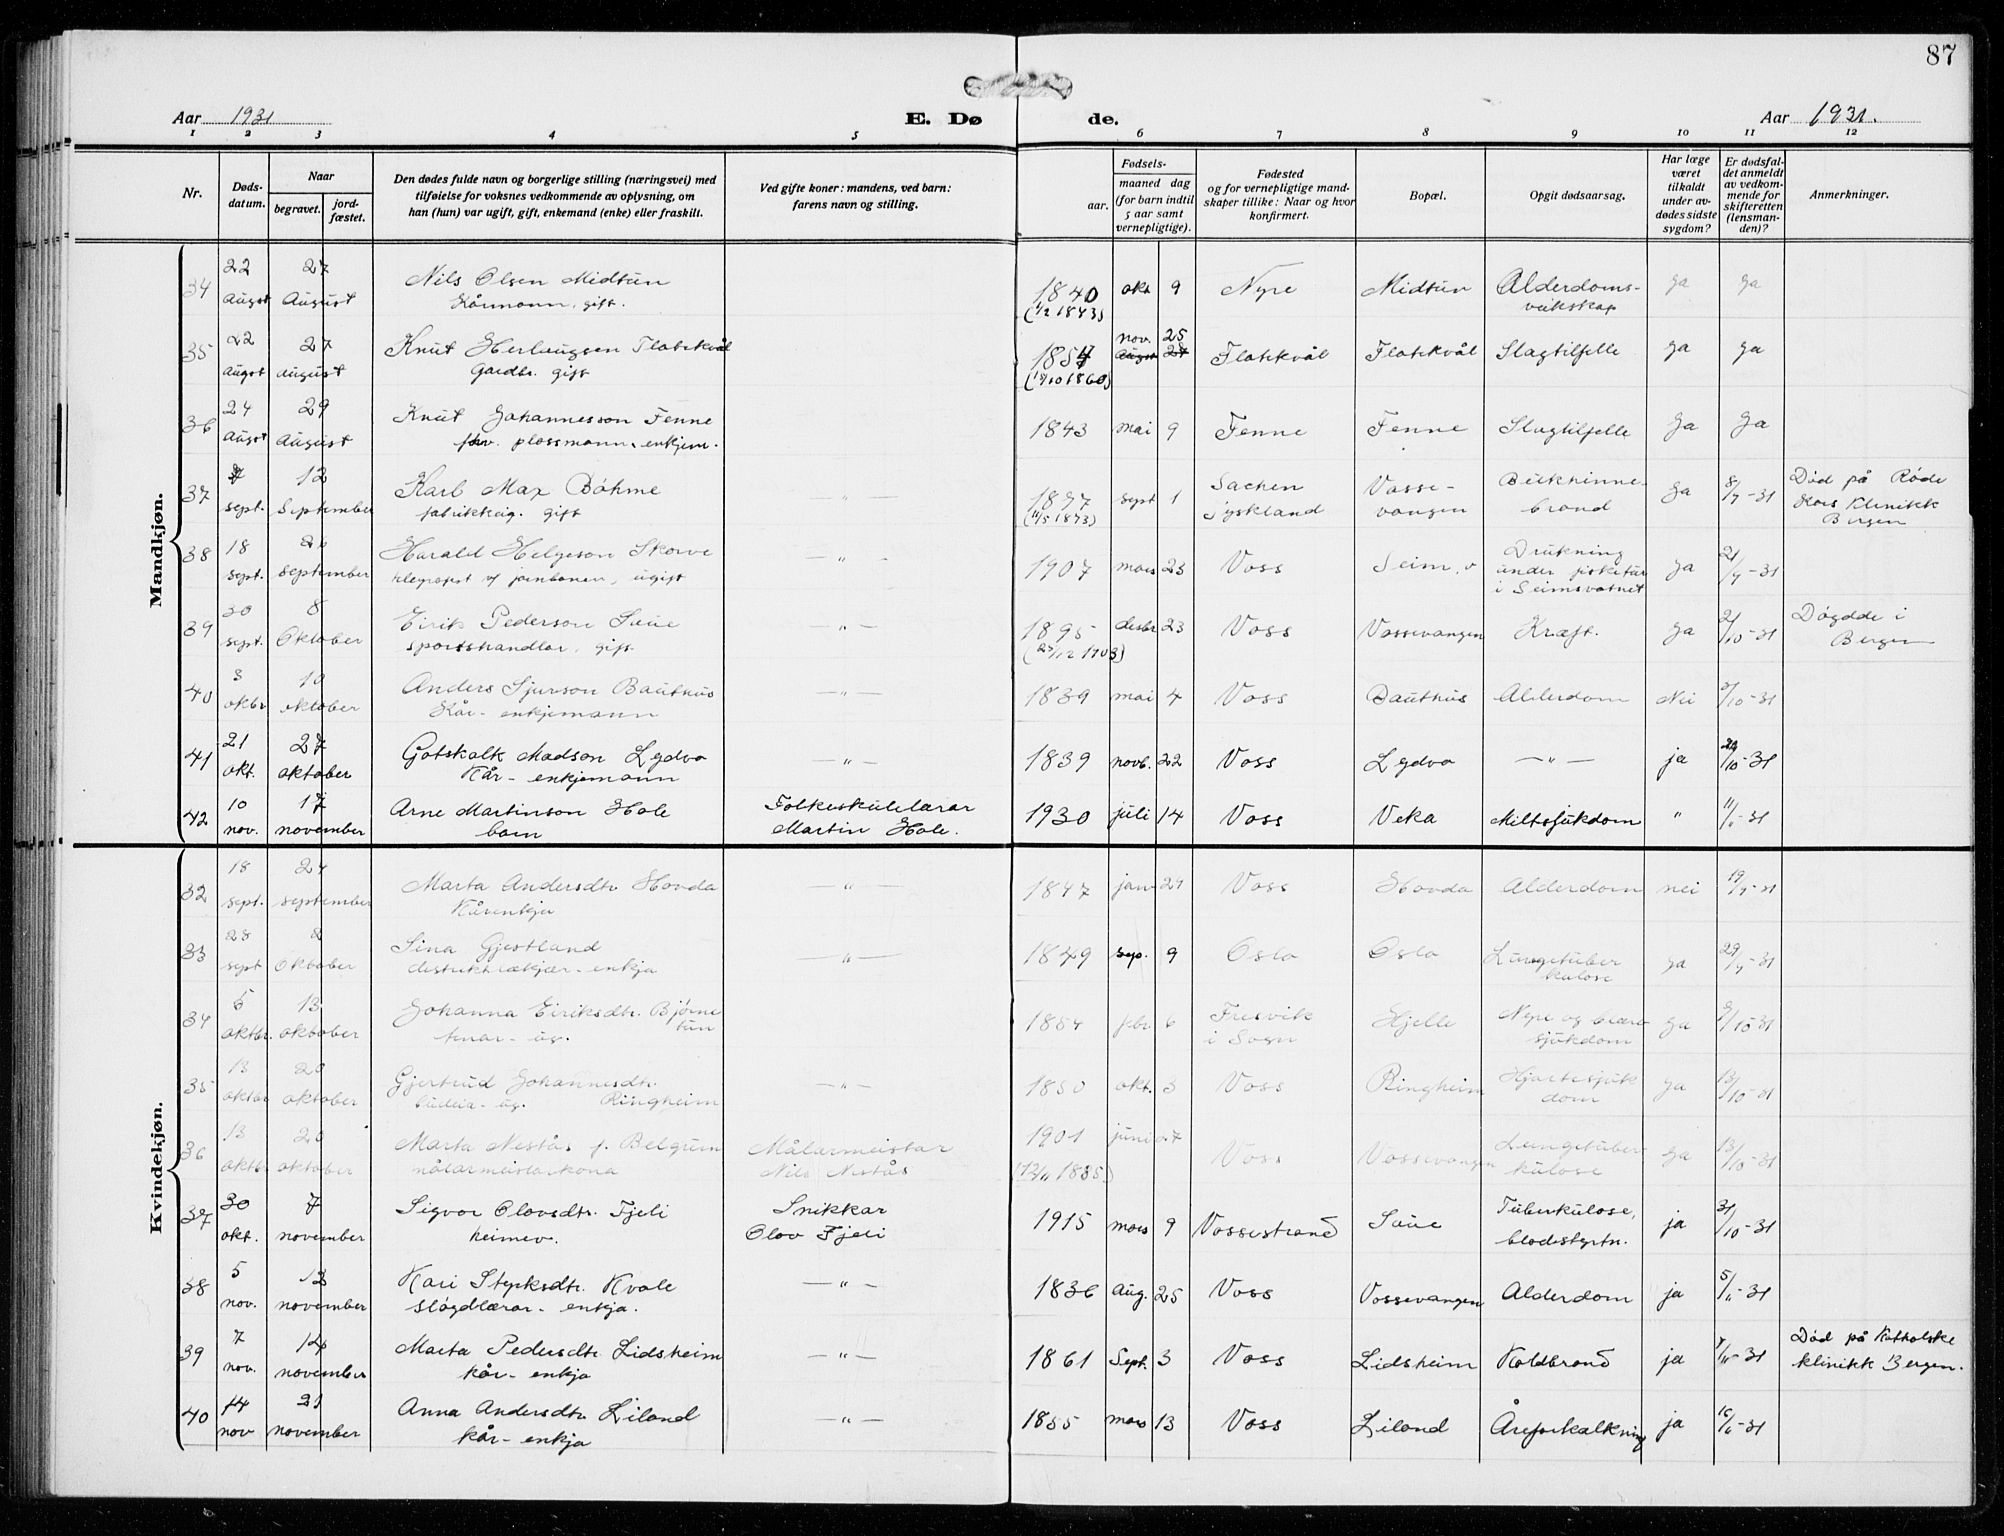 87
Aar 1931
E. Dø de.
Aar 1931.
1 2 3 4 5 6 7 8 9 10 11 12
Nr.
Døds-
datum.
Naar
begravet.
jord-
fæstet.
Den dødes fulde navn og borgerlige stilling (næringsvei) med
tilføielse for voksnes vedkommende av oplysning, om
han (hun) var ugift, gift, enkemand (enke) eller fraskilt.
Ved gifte koner: mandens, ved barn:
farens navn og stilling.
Fødsels-
aar.
maaned dag
(for barn indtil
5 aar samt
vernepligtige).
Fødested
og for vernepligtige mand-
skaper tillike: Naar og hvor
konfirmert.
Bopæl.
Opgit dødsaarsag.
Har læge
været
tilkaldt
under av-
dødes sidste
sygdom?
Er dødsfal-
det anmeldt
av vedkom-
mende for
skifteretten
(lensman-
den)?
Anmerkninger.
Mandkjøn.
34 22 27 Nils Olsen Midtun 1840 okt 9 Nyre Midtun Alderdoms- ja ja
August August Kårmann, gift. veikskap
35 22 27 Knut Herlaugsen Flatekvål nov. 25
August August Gardbr. gift 1857 August Flatekvål Flatekvål Slagtilfelle ja ja
(18/10 1860)
36 24 29 Knut Johannesson Fenne 1843 mai 9 Fenne Fenne Slagtilfelle Ja Ja
August August plassmann, enkjem.
37 12 Karl Max Böhme sept 1 Sachen Vosse- Bukhinne- Ja 8/9-31 Død på Røde
sept. September fabrikkeig. gift Tyskland vangen brand Kors Klinikk
Bergen
38 18 Harald Helgeson Skorve 1907 mars 23 Voss Seim, v Drukning Ja 21/9-31
sept. September telegrafist v/ jarnbanen, ugift under fisketur
i Seimsvatnet
39 30 8 Eirik Pederson Saue 1895 desbr 23 Voss Vossevangen Kræft. Ja 2/10-31 Døydde i
sept. Oktober sportshandlar, gift Bergen
40 3 10 Anders Sjurson Bauthus — " — 1839 mai 4 Voss Bauthus Alderdom Nei 10-31
okbr oktober Kår- enkjemann
41 21 27 Gotskalk Madson Lydvo — " — 1839 novb. 22 Voss Lydvo — " — ja 10-31
okt. oktober Kår- enkjemann
42 10 17 Arne Martinson Hole Folkeskulelærar 1930 juli 14 Voss Veka Miltsjukdom " 11/11-31
nov. november barn Martin Hole.
Kvindekjøn.
32 18 24 Marta Andersdtr. Hovda — " — 1847 jan 24 Voss Hovda Alderdom nei 19/9-31
sept. september Kårenkja
33 28 8 Sina Gjestland — " — 1849 sep. 9 Oslo Oslo Lungetuber ja 29/9-31
sept Oktober enkja kulose
34 6 13 Johanna Eiriksdtr. Bjørne 1854 febr 6 Fresvik Hjelle Nyre og blære Ja 10-31
oktbr. oktober tun
tenar- ug. i Sogn sjukdom
35 13 20 Gjertrud Johannesdtr. — " — 1850 okt. 3 Voss Ringheim Hjartesjuk Ja 13/10-31
oktbr oktober budeia- ug. Ringheim dom
36 13 20 Marta Nestås f. Belgum Målarmeistar 1901 juni Voss Vossevangen Lungetuber Ja 13/10-31
oktbr oktober målarmeistarkona Nils Nestås kulose
37 30 7 Sigvor Olavsdtr. Fjeli Snikkar 1915 mars 9 Vossestrand Saue Tuberkulose, ja 31/10-31
okt. november heimev. Olav Fjeli blodstyrtn.
38 5 12 Kari Styrksdtr. Kvale — " — 1836 Aug. 25 Voss Vossevangen Alderdom ja 5/11-31
nov. november sløgdlærar- enkja.
39 7 14 Marta Pedersdtr. Lidsheim — " — 1861 Sept. 3 Voss Lidsheim Koldbrand ja 7/11-31 Død på Katholske
nov. november kår- enkja klinikk Bergen.
40 14 21 Anna Andersdtr. Liland — " — 1855 mars 13 Voss Liland Åreforkalkning ja 16/11-31
nov november kår- enkja